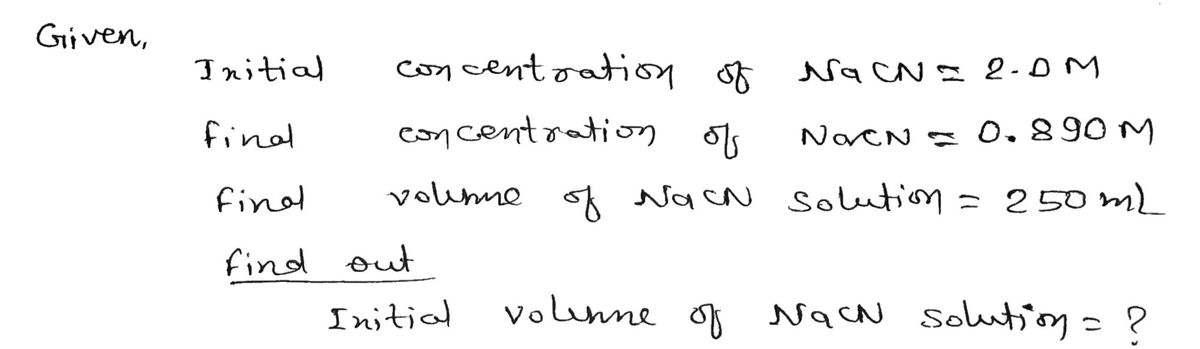 Given,
Initial concentration of NaCN = 2.0 M
final concentration of NaCN = 0.890 M
final volume of NaCN solution = 250 mL
find out
Initial volume of NaCN solution = ?